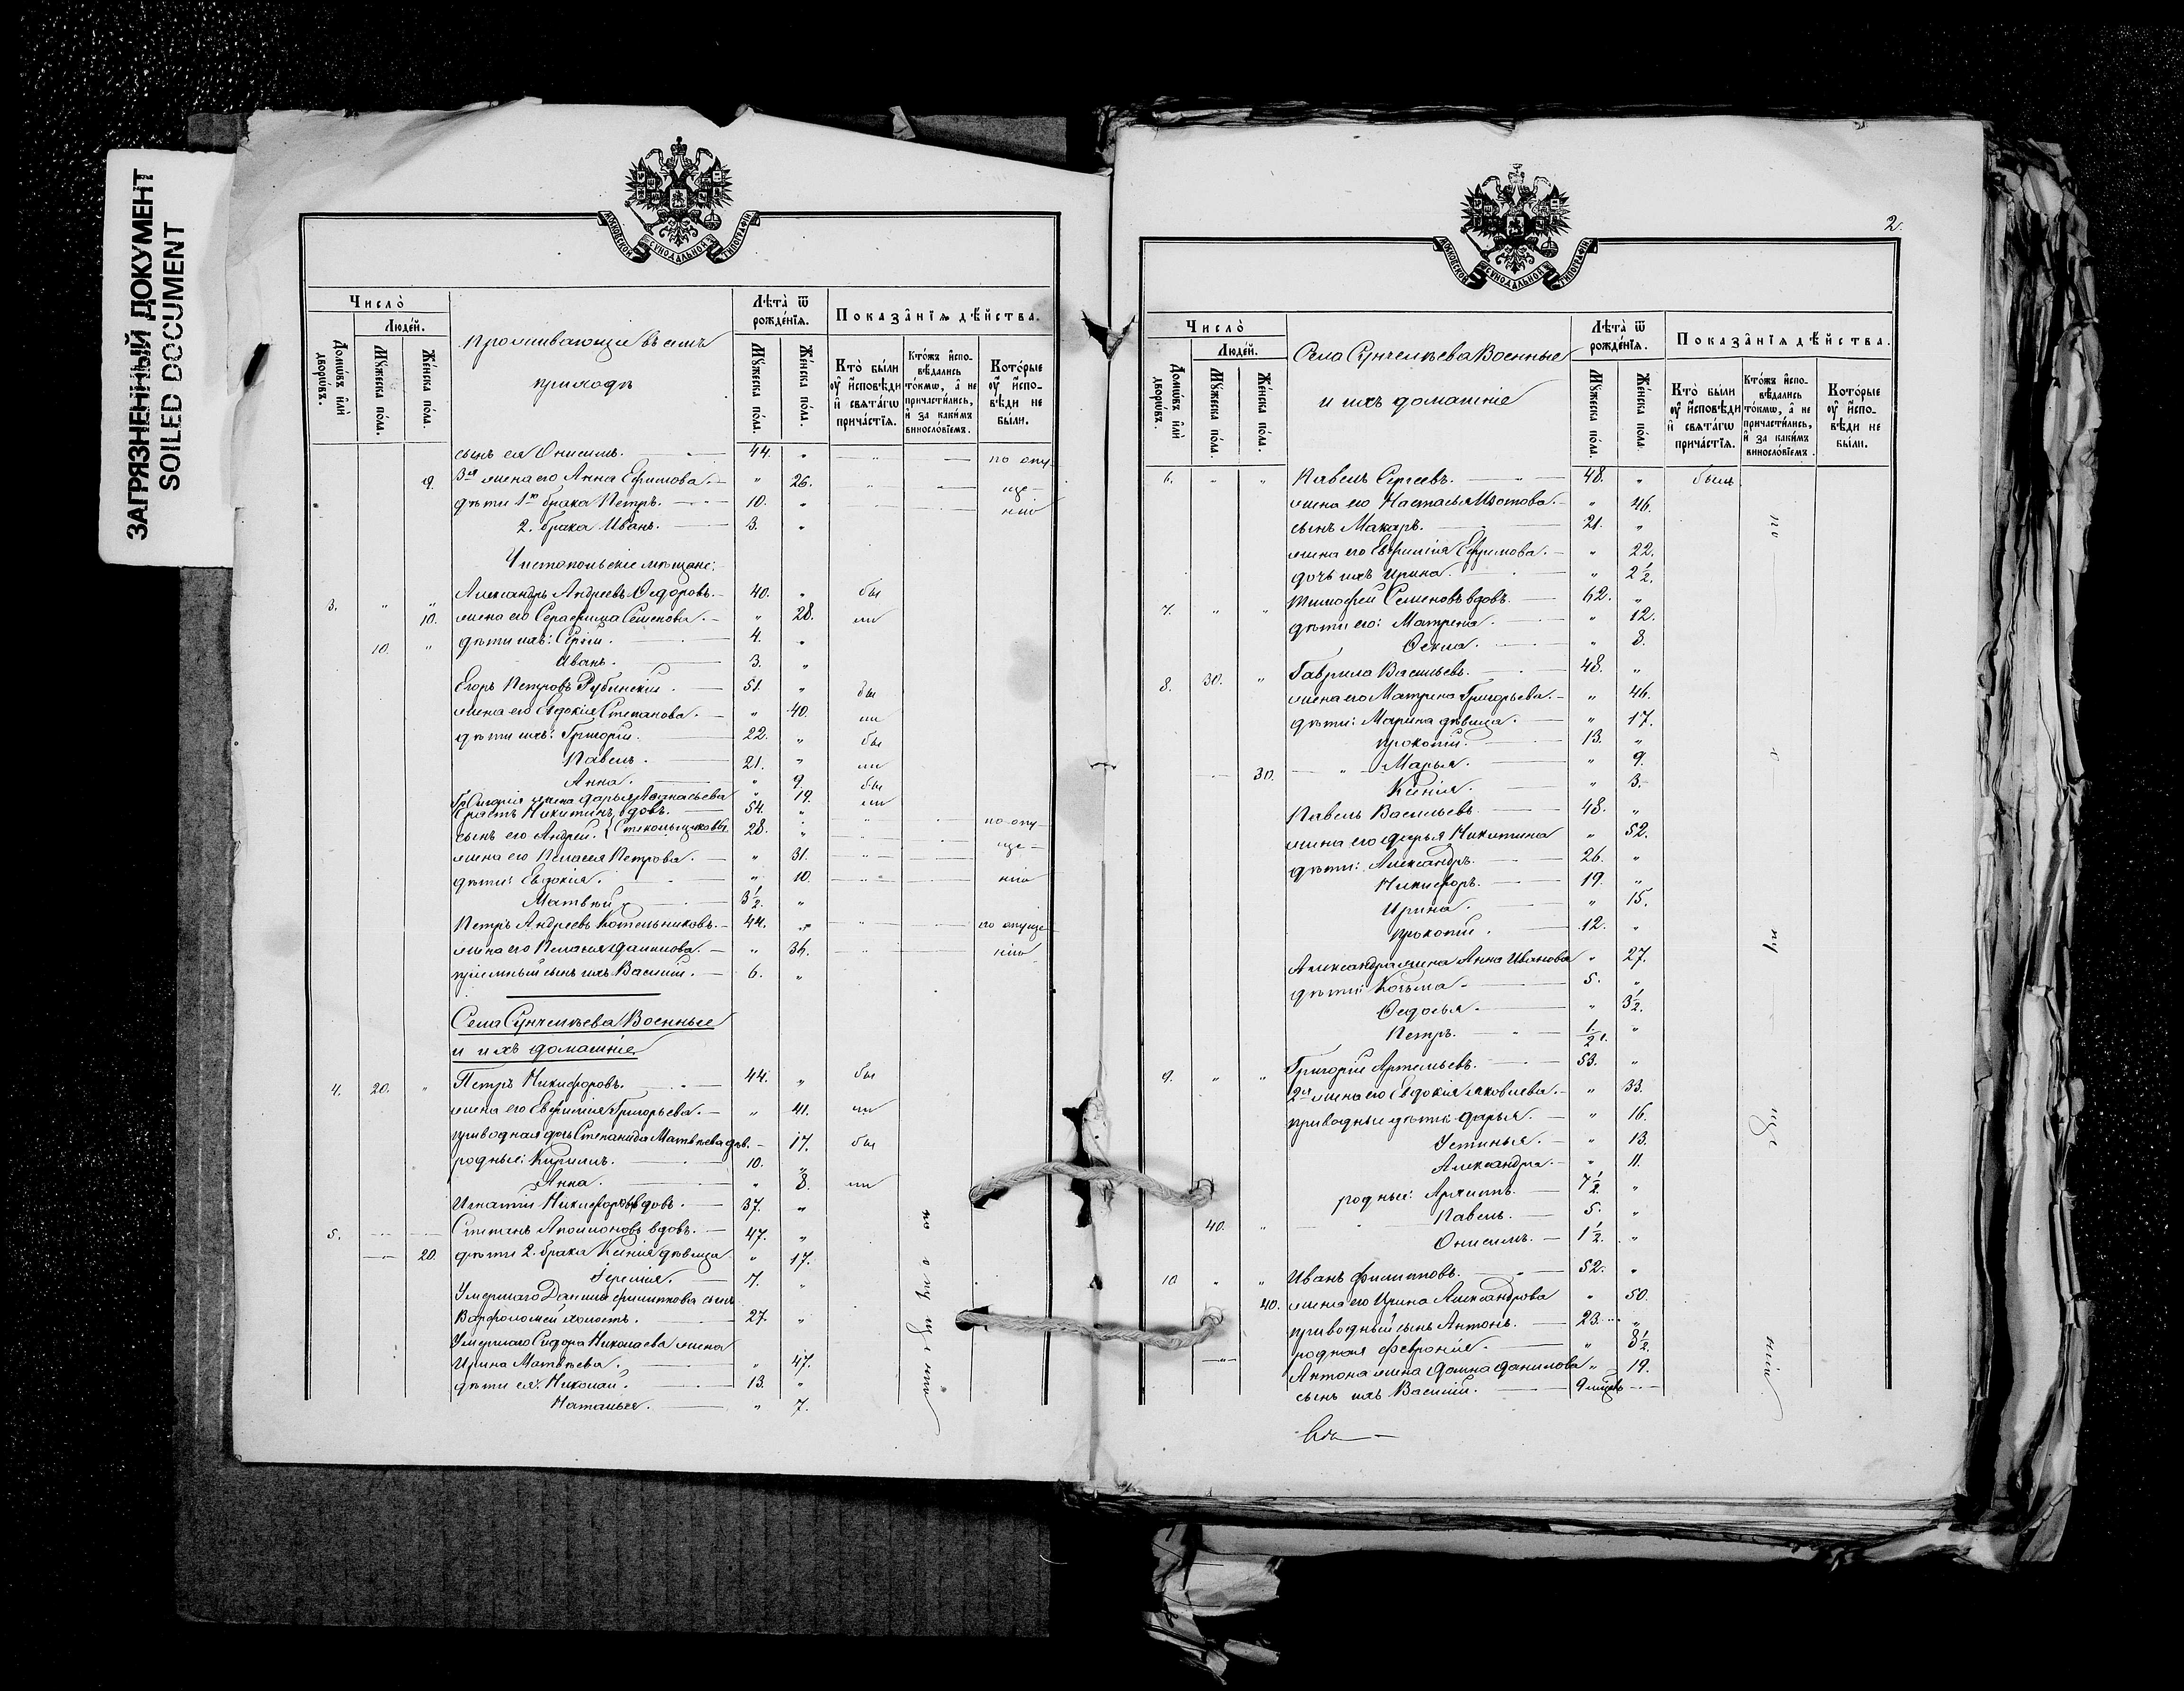 ЗАГРЯЗНЕННЫЙ ДОКУМЕНТ
SOILED DOCUMENT
МОСКОВСКОЙ СѴНОДАЛЬНОЙ ТИПОГРАФІИ
Число̀
Люде́й.
Домѡ́въ и҆лѝ дворѡ́въ.
Мꙋ́жеска по́ла.
Же́нска по́ла.
Проживающіе въ семъ
приходѣ
Лѣ́та ѿ рожде́нїѧ.
Мꙋ́жеска по́ла.
Же́нска по́ла.
Показа̂нїѧ дѣ́йства.
Кто̀ бы́ли ᲂу҆ и҆сповѣ́ди и҆ свѧта́гѡ прича́стїѧ.
Кто́жъ и҆спо-вѣ́дались то́кмѡ, а҆ не причасти́лись, и҆ за каки́мъ винослові́емъ.
Кото́рые ᲂу҆ и҆спо-вѣ́ди не бы́ли.
сынъ ея Онисимъ. 44. " по опу-
9. 3я жена его Анна Ефимова. " 26. ще-
дѣти 1го брака Петръ. 10. " нію
2. брака Иванъ. 3. "
Чистопольскіе мѣщане:
3. " " Александръ Андреевъ Ѳедоровъ. 40. " бы
10. жена его Серафима Семенова. " 28. ли
10. " дѣти ихъ: Сергій. 4. "
Иванъ. 3. "
Егоръ Петровъ Рубинскій. 51. " бы
жена его Евдокія Степанова. " 40. ли
дѣти ихъ: Григорій. 22. " бы
Павелъ. 21. " ли
Анна. " 9. бы
Григорія жена Дарья Аѳанасьева " 19. ли
Никитинъ, вдовъ. 54. "
сынъ его Андрей. Стекольщиковы. 28. " по опу-
жена его Пелагея Петрова. " 31. ще-
дѣти: Евдокія. " 10. нію
Матвѣй 3½. "
Петръ Андреевъ Котельниковъ. 44. " по опуще-
жена его Пелагея " 34. нію
пріемный сынъ ихъ Василій. 6. "
Села Сунчелѣева Военные
и ихъ домашніе
4. 20. " Петръ Никифоровъ. 44. " бы
жена его Евфимія Григорьева. " 41. ли
приводная дочь Степанида Матвѣева дѣв. 17. бы
родные: Кириллъ. 10. "
Анна. " 8. ли
Игнатій Никифоровъ вдовъ. 37. "
5. Степанъ вдовъ. 47. "
20. дѣти 2. брака Ксенія дѣвица " 17.
Іеремія. 7. "
Умершаго Данила Филиппова сынъ
Варфоломей холостъ. 27. "
Умершаго Сидора Николаева жена
Ирина Матвѣева. " 47.
дѣти ея: Николай. 13. "
Наталья. " 7.
по опущенію
2.
МОСКОВСКОЙ СѴНОДАЛЬНОЙ ТИПОГРАФІИ
Число̀
Люде́й.
Домѡ́въ и҆лѝ дворѡ́въ.
Мꙋ́жеска по́ла.
Же́нска по́ла.
Села Сунчелѣева Военные
и ихъ домашніе
Лѣ́та ѿ рожде́нїѧ.
Мꙋ́жеска по́ла.
Же́нска по́ла.
Показа̂нїѧ дѣ́йства.
Кто̀ бы́ли ᲂу҆ и҆сповѣ́ди и҆ свѧта́гѡ прича́стїѧ.
Кто́жъ и҆спо-вѣ́дались то́кмѡ, а҆ не причасти́лись, и҆ за каки́мъ винослові́емъ.
Кото́рые ᲂу҆ и҆спо-вѣ́ди не бы́ли.
6. " " Павелъ Сергеевъ. 48. " былъ
жена его Настасья Изотова. " 46.
сынъ Макаръ. 21. "
жена его Евфимія Ефимова. " 22.
дочь ихъ Ирина. " 2½.
7. " " Тимофей Семеновъ вдовъ. 62. "
дѣти его: Матрена. " 12.
Ѳекла. " 8.
8. 30. " Гаврила Васильевъ. 48. "
жена его Матрена Григорьева. " 46.
дѣти: Марина дѣвица. " 17.
Прокопій. 13. "
30. Марья. " 9.
Ксенія. " 3.
Павелъ Васильевъ. 48. "
жена его Дарья Никитина " 52.
дѣти: Александръ. 26. "
Никифоръ. 19. "
Ирина. " 15.
Прокопій. 12. "
Александра жена Анна Иванова " 27.
дѣти: Козьма. 5. "
Ѳедосья. " 3½.
Петръ. ½. "
9. " " Григорій Артемьевъ. 53. "
2я жена его Евдокія Яковлева. " 33.
приводные дѣти: Дарья. " 16.
Устинья. " 13.
Александра. " 11.
родные: Архиппъ. 7½. "
40. " Павелъ. 5. "
Онисимъ. 1½. "
10 " " Иванъ Филипповъ. 52. "
40. жена его Ирина Александрова " 50.
приводный сынъ Антонъ. 23. "
родная Февронія. " 8½.
Антона жена Домна Данилова " 19.
сынъ ихъ Василій. 9 мцевъ
по опущенію